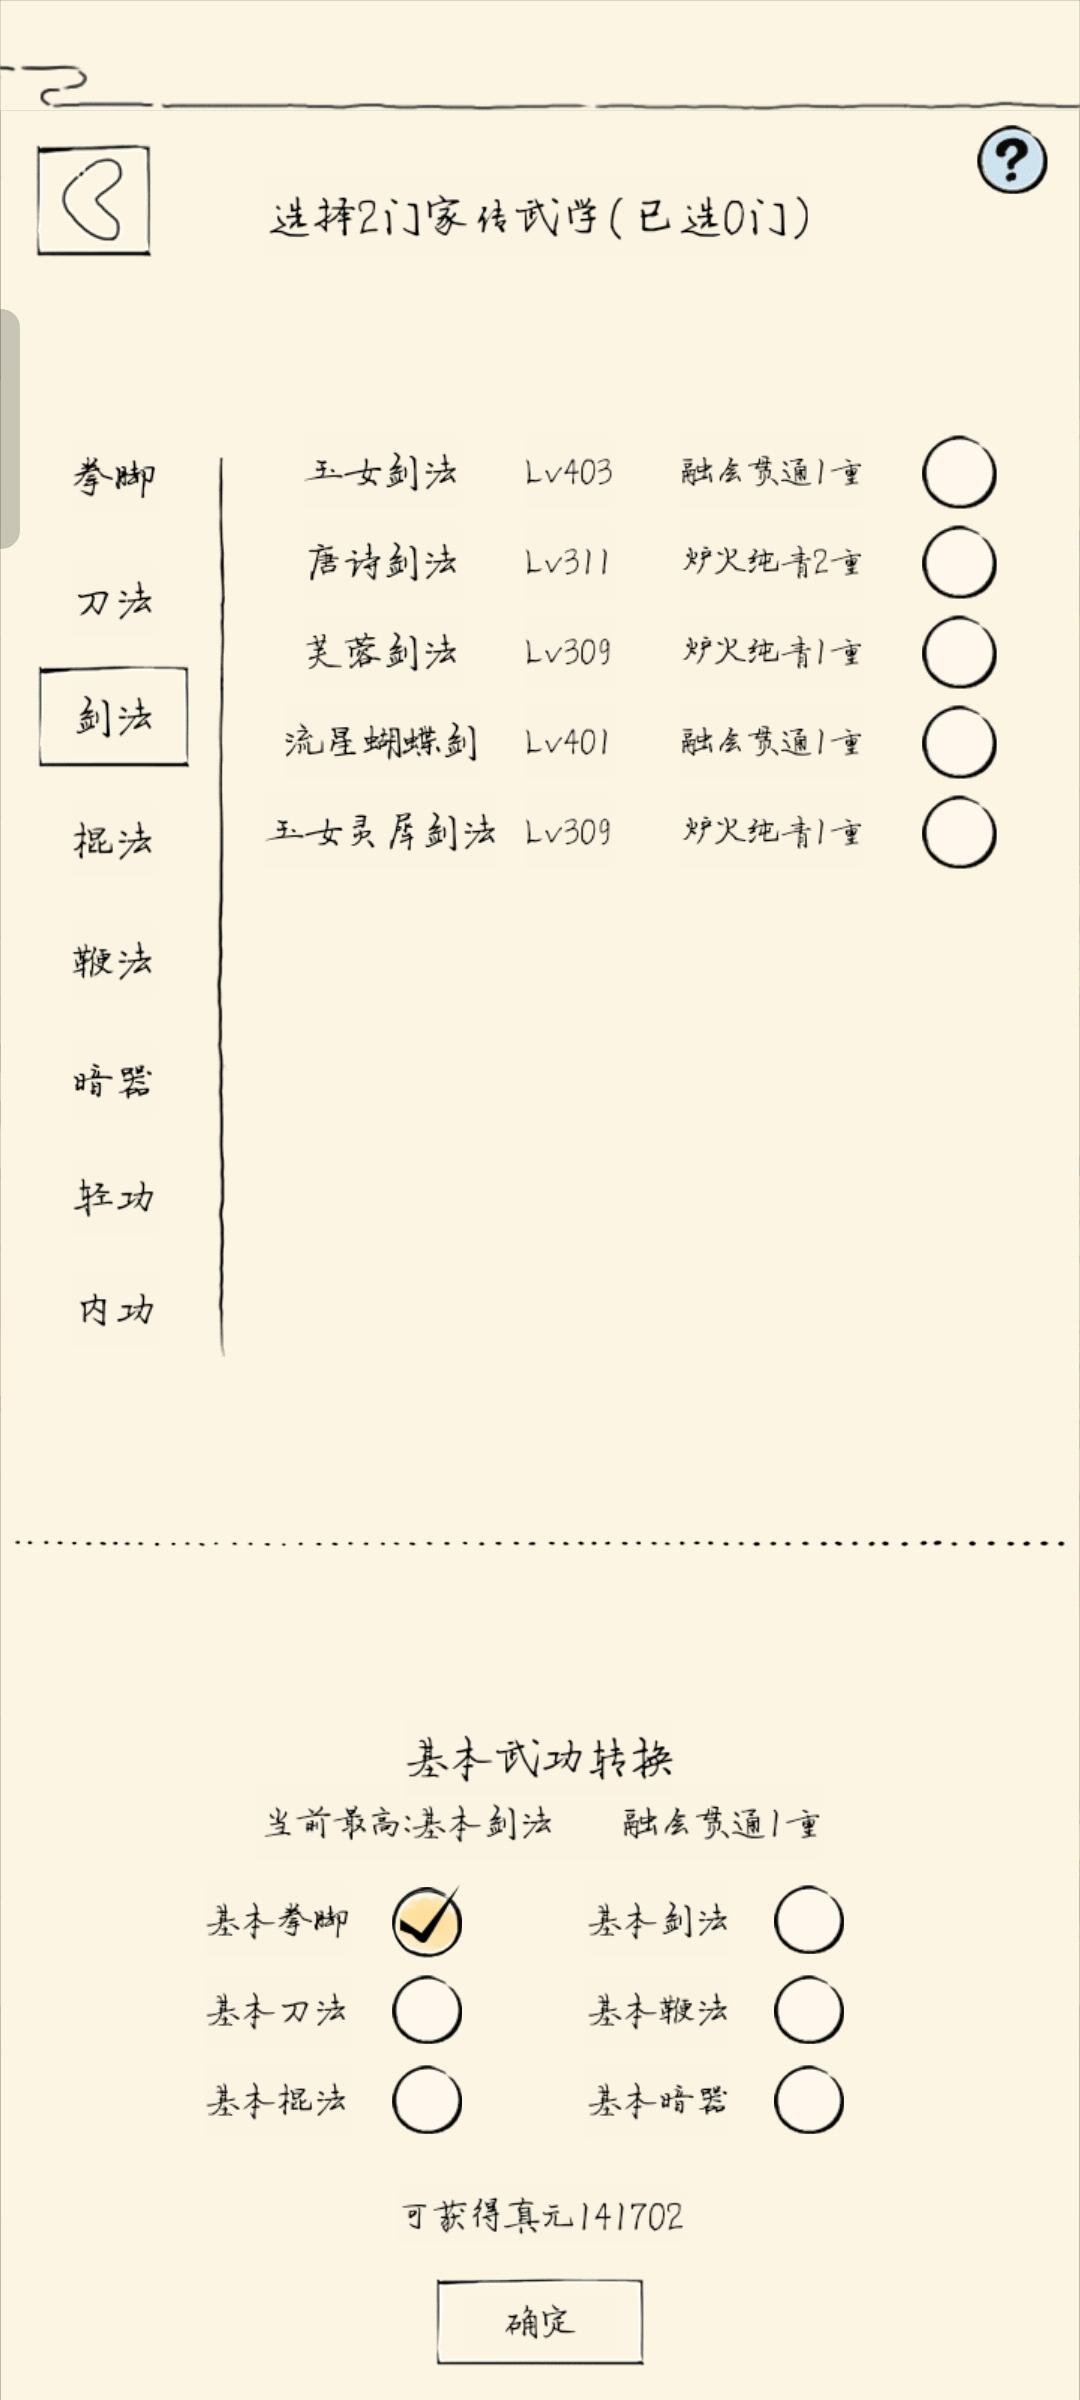 ?
选择2门家传武学(已选0门)
拳脚
刀法
剑法
棍法
鞭法
暗器
轻功
内功
玉女剑法 Lv403 融会贯通1重
唐诗剑法 Lv311 炉火纯青2重
芙蓉剑法 Lv309 炉火纯青1重
流星蝴蝶剑 Lv401 融会贯通1重
玉女灵犀剑法 Lv309 炉火纯青1重
基本武功转换
当前最高:基本剑法 融会贯通1重
基本拳脚 基本剑法
基本刀法 基本鞭法
基本棍法 基本暗器
可获得真元141702
确定